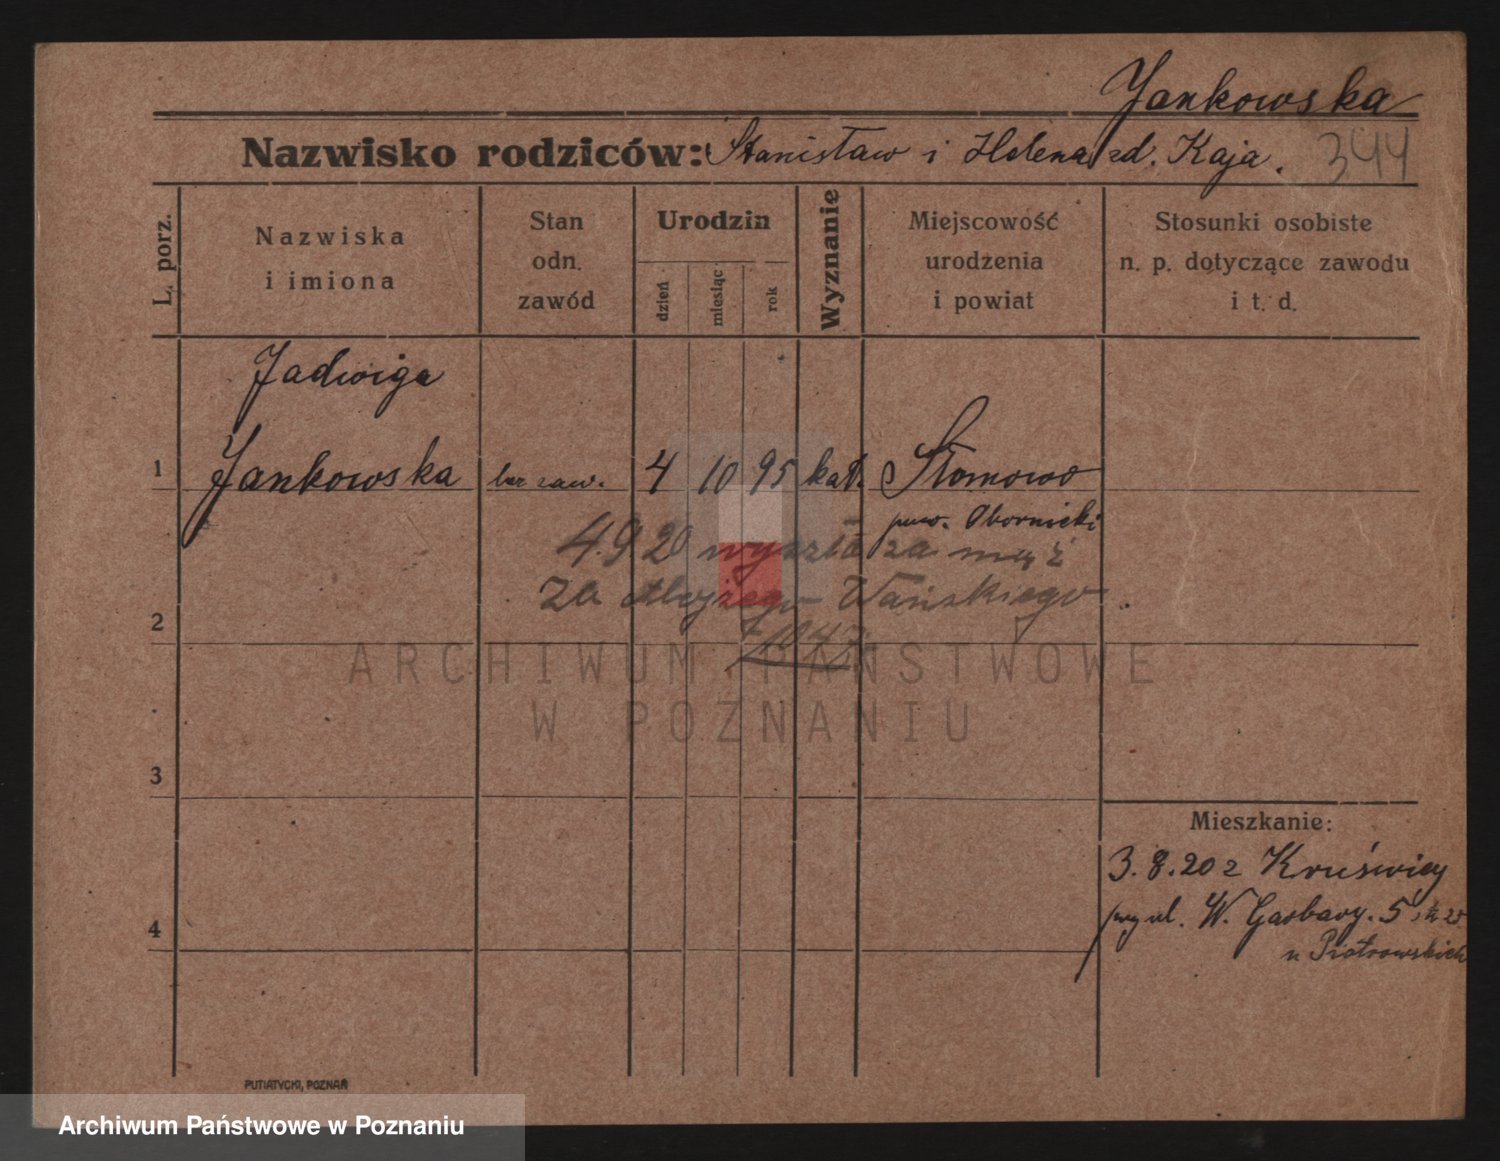 Jankowska
Nazwisko rodziców: Stanisław i Helena zd. Kaja.
344
L. porz.
Nazwiska
i imiona
Stan
odn.
zawód
Urodzin
dzień
miesiąc
rok
Wyznanie
Miejscowość
urodzenia
i powiat
Stosunki osobiste
n. p. dotyczące zawodu
i t. d.
Jadwiga
1 Jankowska bez zaw. 4 10 95 kat. Słomowo
pow. Obornicki
4.9 20 wyszła za mąż
za Alojzego Wańskiego.
2
ARCHIWUM PAŃSTWOWE
W POZNANIU
3
Mieszkanie:
3. 8. 20 z Kruświcy
4
ul. W. Garbary. 5
u Piotrowskich
PUTIATYCKI, POZNAŃ
Archiwum Państwowe w Poznaniu